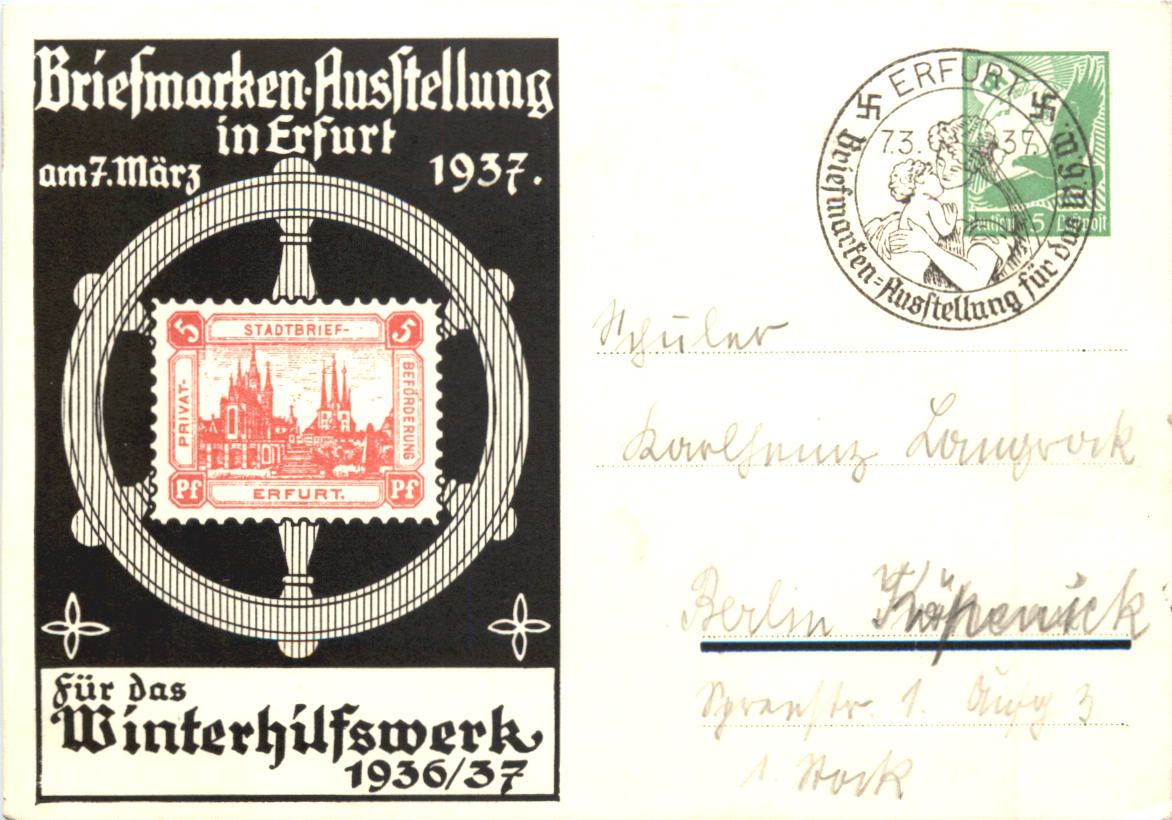 Briefmarken-Ausstellung
in Erfurt
am 7. März 1937.
5 STADTBRIEF- 5
PRIVAT-
BEFÖRDERUNG
Pf ERFURT. Pf
Für das
Winterhilfswerk
1936/37
ERFURT
7.3. 37
Briefmarken=Ausstellung für das W.H.W.
5 Luftpost
Schüler
Karlheinz Langrock
Berlin Köpenick
Spreestr. 1. Aufg 3
1. Stock